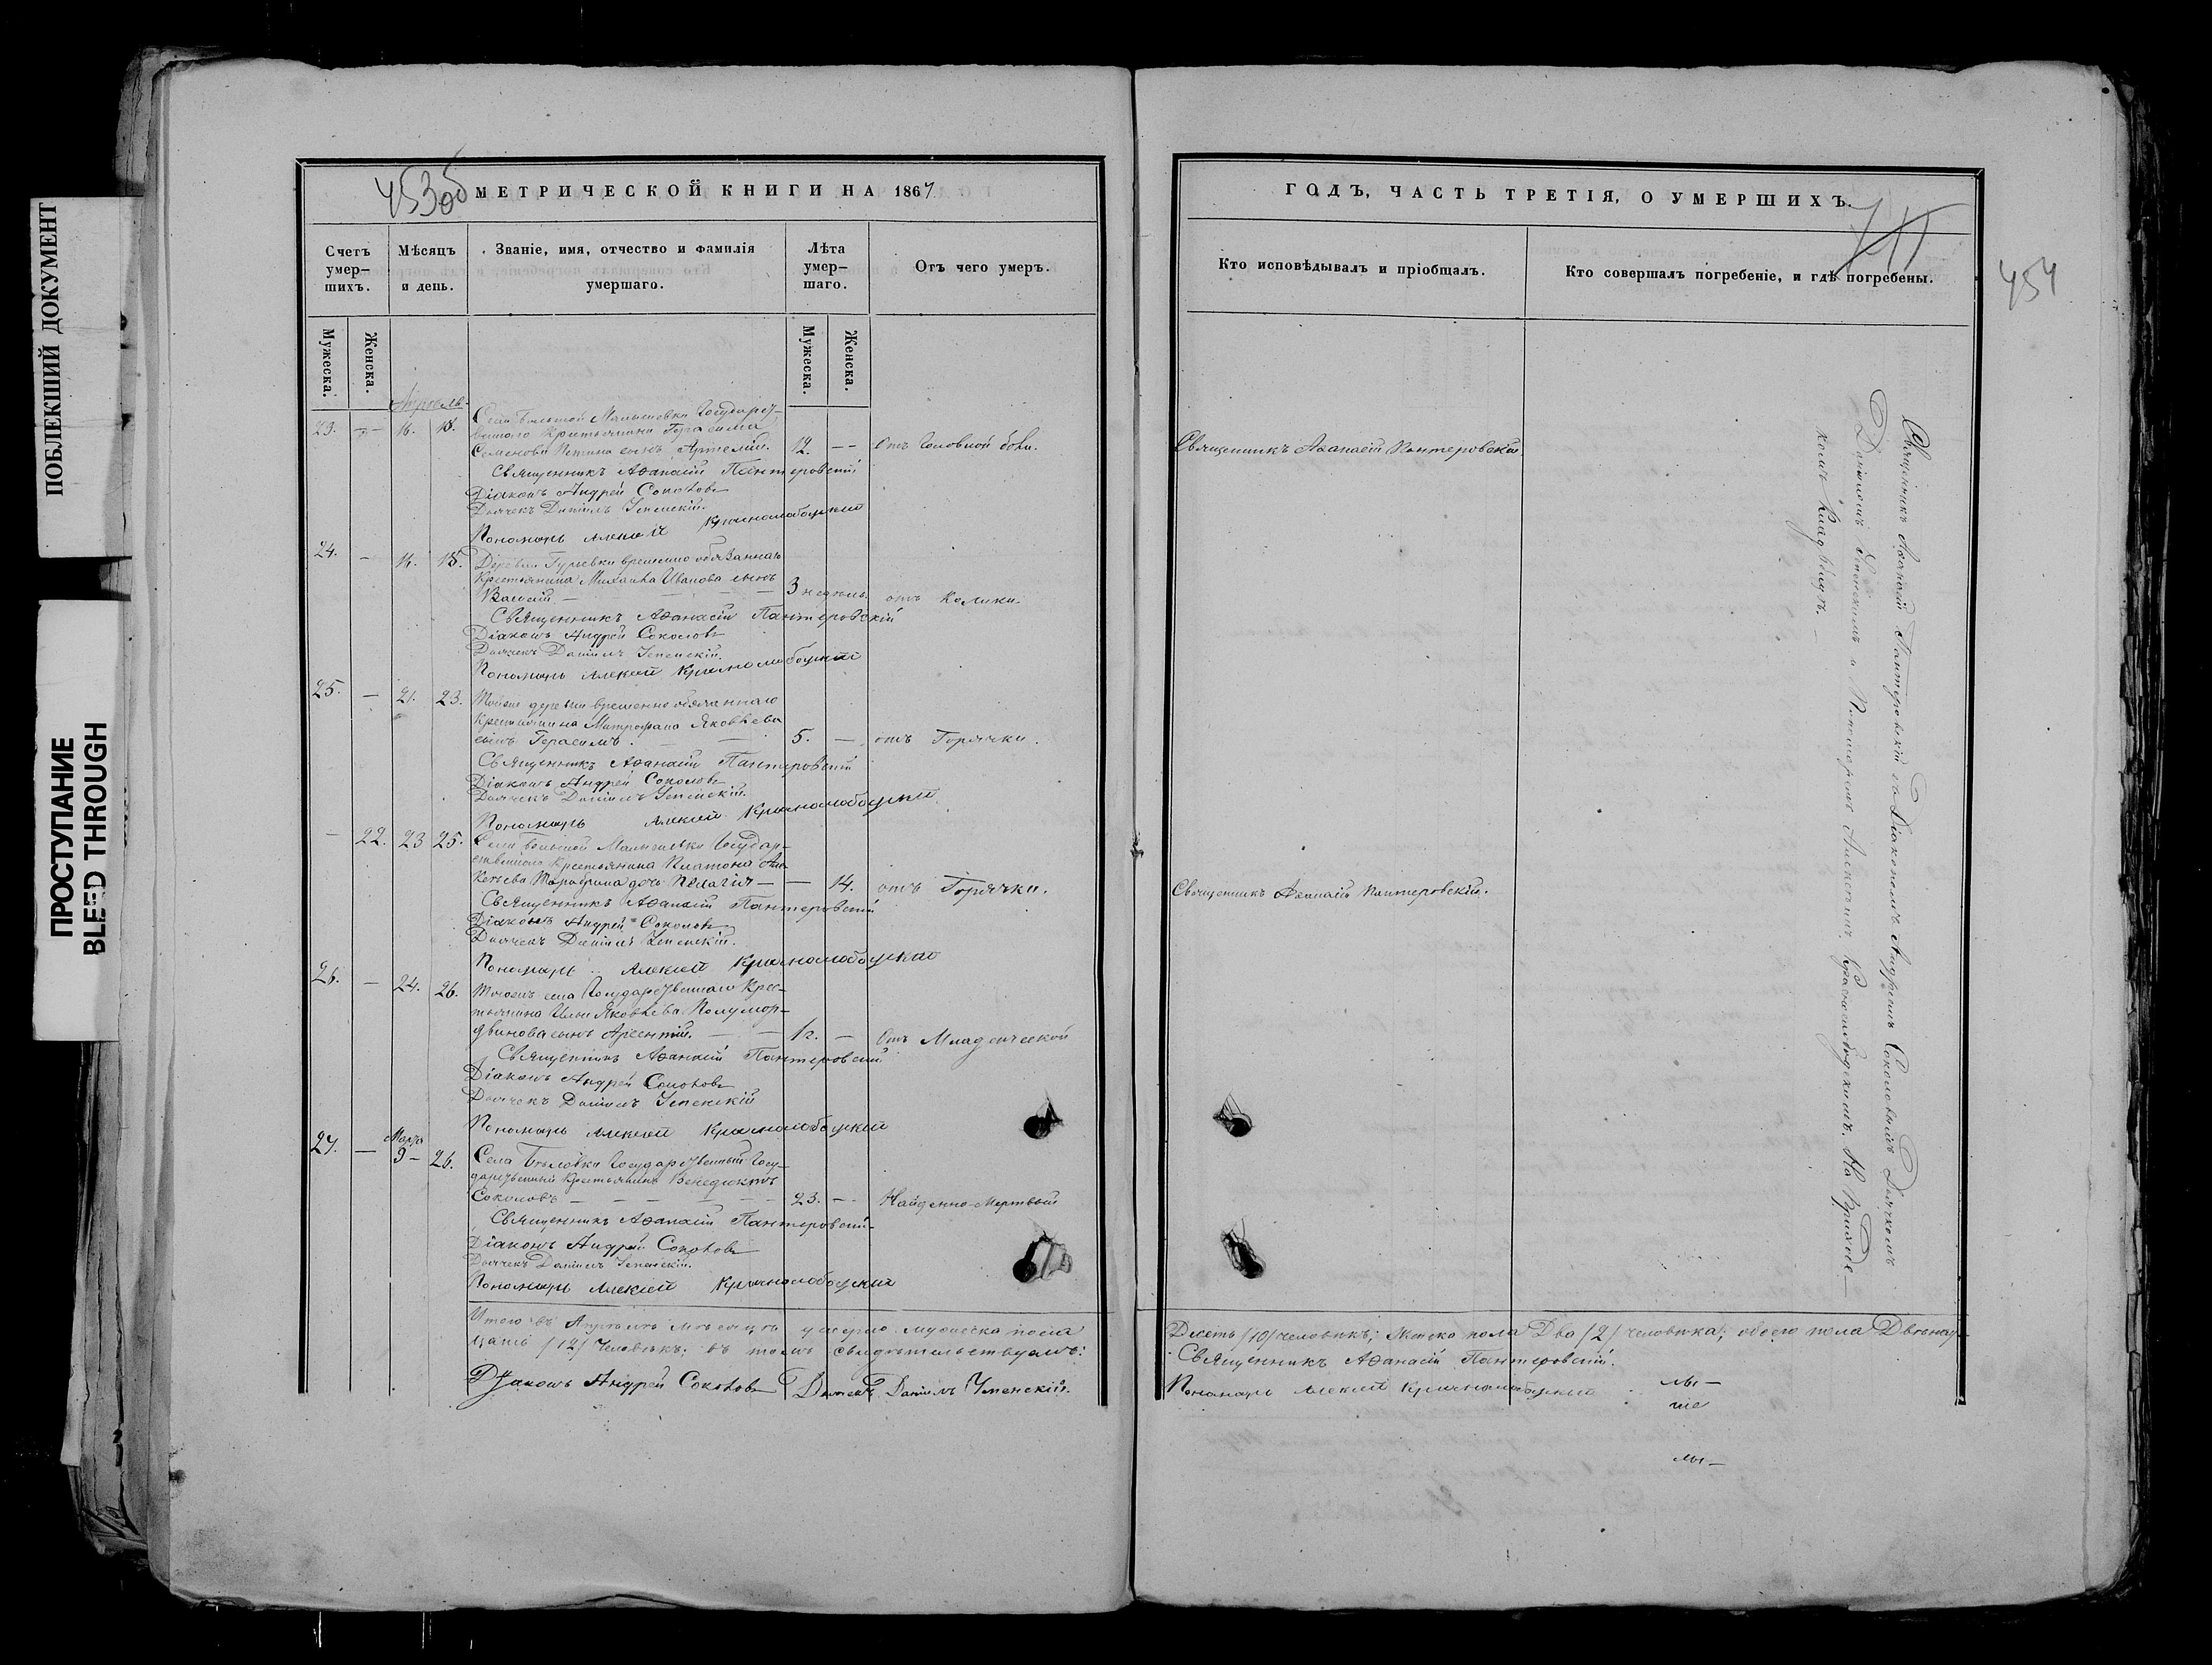 ПОБЛЕКШИЙ ДОКУМЕНТ
ПРОСТУПАНИЕ
BLEED THROUGH
453 об
МЕТРИЧЕСКОЙ КНИГИ НА 1867
Счетъ умер–шихъ.
Мѣсяцъ и день.
Званіе, имя, отчество и фамилія умершаго.
Лѣта умер–шаго.
Отъ чего умеръ.
Мужеска.
Женска.
Мужеска.
Женска.
Апрель
23. — 16. 18. Села Большой Малышевки Государст–
веннаго Крестьянина Герасима
Семенова сынъ Артемій. 12. — Отъ Головной боли.
Священникъ Аѳанасій Пантеровскій
Діаконъ Андрей Соколовъ
Дьячекъ Даніилъ Успенскій.
Пономарь Алексій Краснослободскій
24. — 16. 18. Деревни Гурьевки временно обязаннаго
Крестьянина Михаила Иванова сынъ
Василій — 3 недѣль. отъ Колики.
Священникъ Аѳанасій Пантеровскій
Діаконъ Андрей Соколовъ
Дьячекъ Даніилъ Успенскій.
Пономарь Алексій Краснослободскій
25. — 21. 23. Тойже деревни временно обязаннаго
Крестьянина Митрофана Яковлева
сынъ Герасимъ. — 5. — отъ Горячки.
Священникъ Аѳанасій Пантеровскій
Діаконъ Андрей Соколовъ
Дьячекъ Даніилъ Успенскій.
Пономарь Алексій Краснослободскій
— 22. 23 25. Села Большой Малышевки Государ–
ственнаго Крестьянина Платона
дочь Пелагія — — 14. отъ Горячки.
Священникъ Аѳанасій Пантеровскій
Діаконъ Андрей Соколовъ
Дьячекъ Даніилъ Успенскій.
Пономарь Алексій Краснослободскій
26. — 24. 26. Тогоже села Государственнаго Крес–
тьянина Ильи Яковлева Полумор–
двинова сынъ Арсентій. — 1г. — Отъ Младенческой
Священникъ Аѳанасій Пантеровскій
Діаконъ Андрей Соколовъ
Дьячекъ Даніилъ Успенскій
Пономарь Алексій Краснослободскій
27. — Марта 9 – 26. Села Государственный Госу–
дарственный Крестьянинъ Венедиктъ
Соколовъ — 23. — Найденно-Мертвый
Священникъ Аѳанасій Пантеровскій
Діаконъ Андрей Соколовъ
Дьячекъ Даніилъ Успенскій.
Пономарь Алексій Краснослободскій
Итого въ Апрѣлѣ мѣсяцѣ умерло мужеска пола
цать /12/ Человѣкъ; въ томъ свидѣтельствуемъ:
Діаконъ Андрей Соколовъ Дьячекъ Даніилъ Успенскій.
ГОДЪ, ЧАСТЬ ТРЕТІЯ, О УМЕРШИХЪ.
454
Кто исповѣдывалъ и пріобщалъ.
Кто совершалъ погребеніе, и гдѣ погребены.
Священникъ Аѳанасій Пантеровскій
Священникъ Аѳанасій Пантеровскій.
Священникъ Аѳанасій Пантеровскій съ Діакономъ Андреемъ Соколовымъ Дьячкомъ
Даніиломъ Успенскимъ и Пономаремъ Алексѣемъ Краснослободскимъ. На Приход–
комъ Кладбищѣ. —
Десять /10/ человѣкъ; Женска пола Два /2/ человѣка; обоего пола Двенад–
Священникъ Аѳанасій Пантеровскій.
Пономарь Алексій Краснослободскій